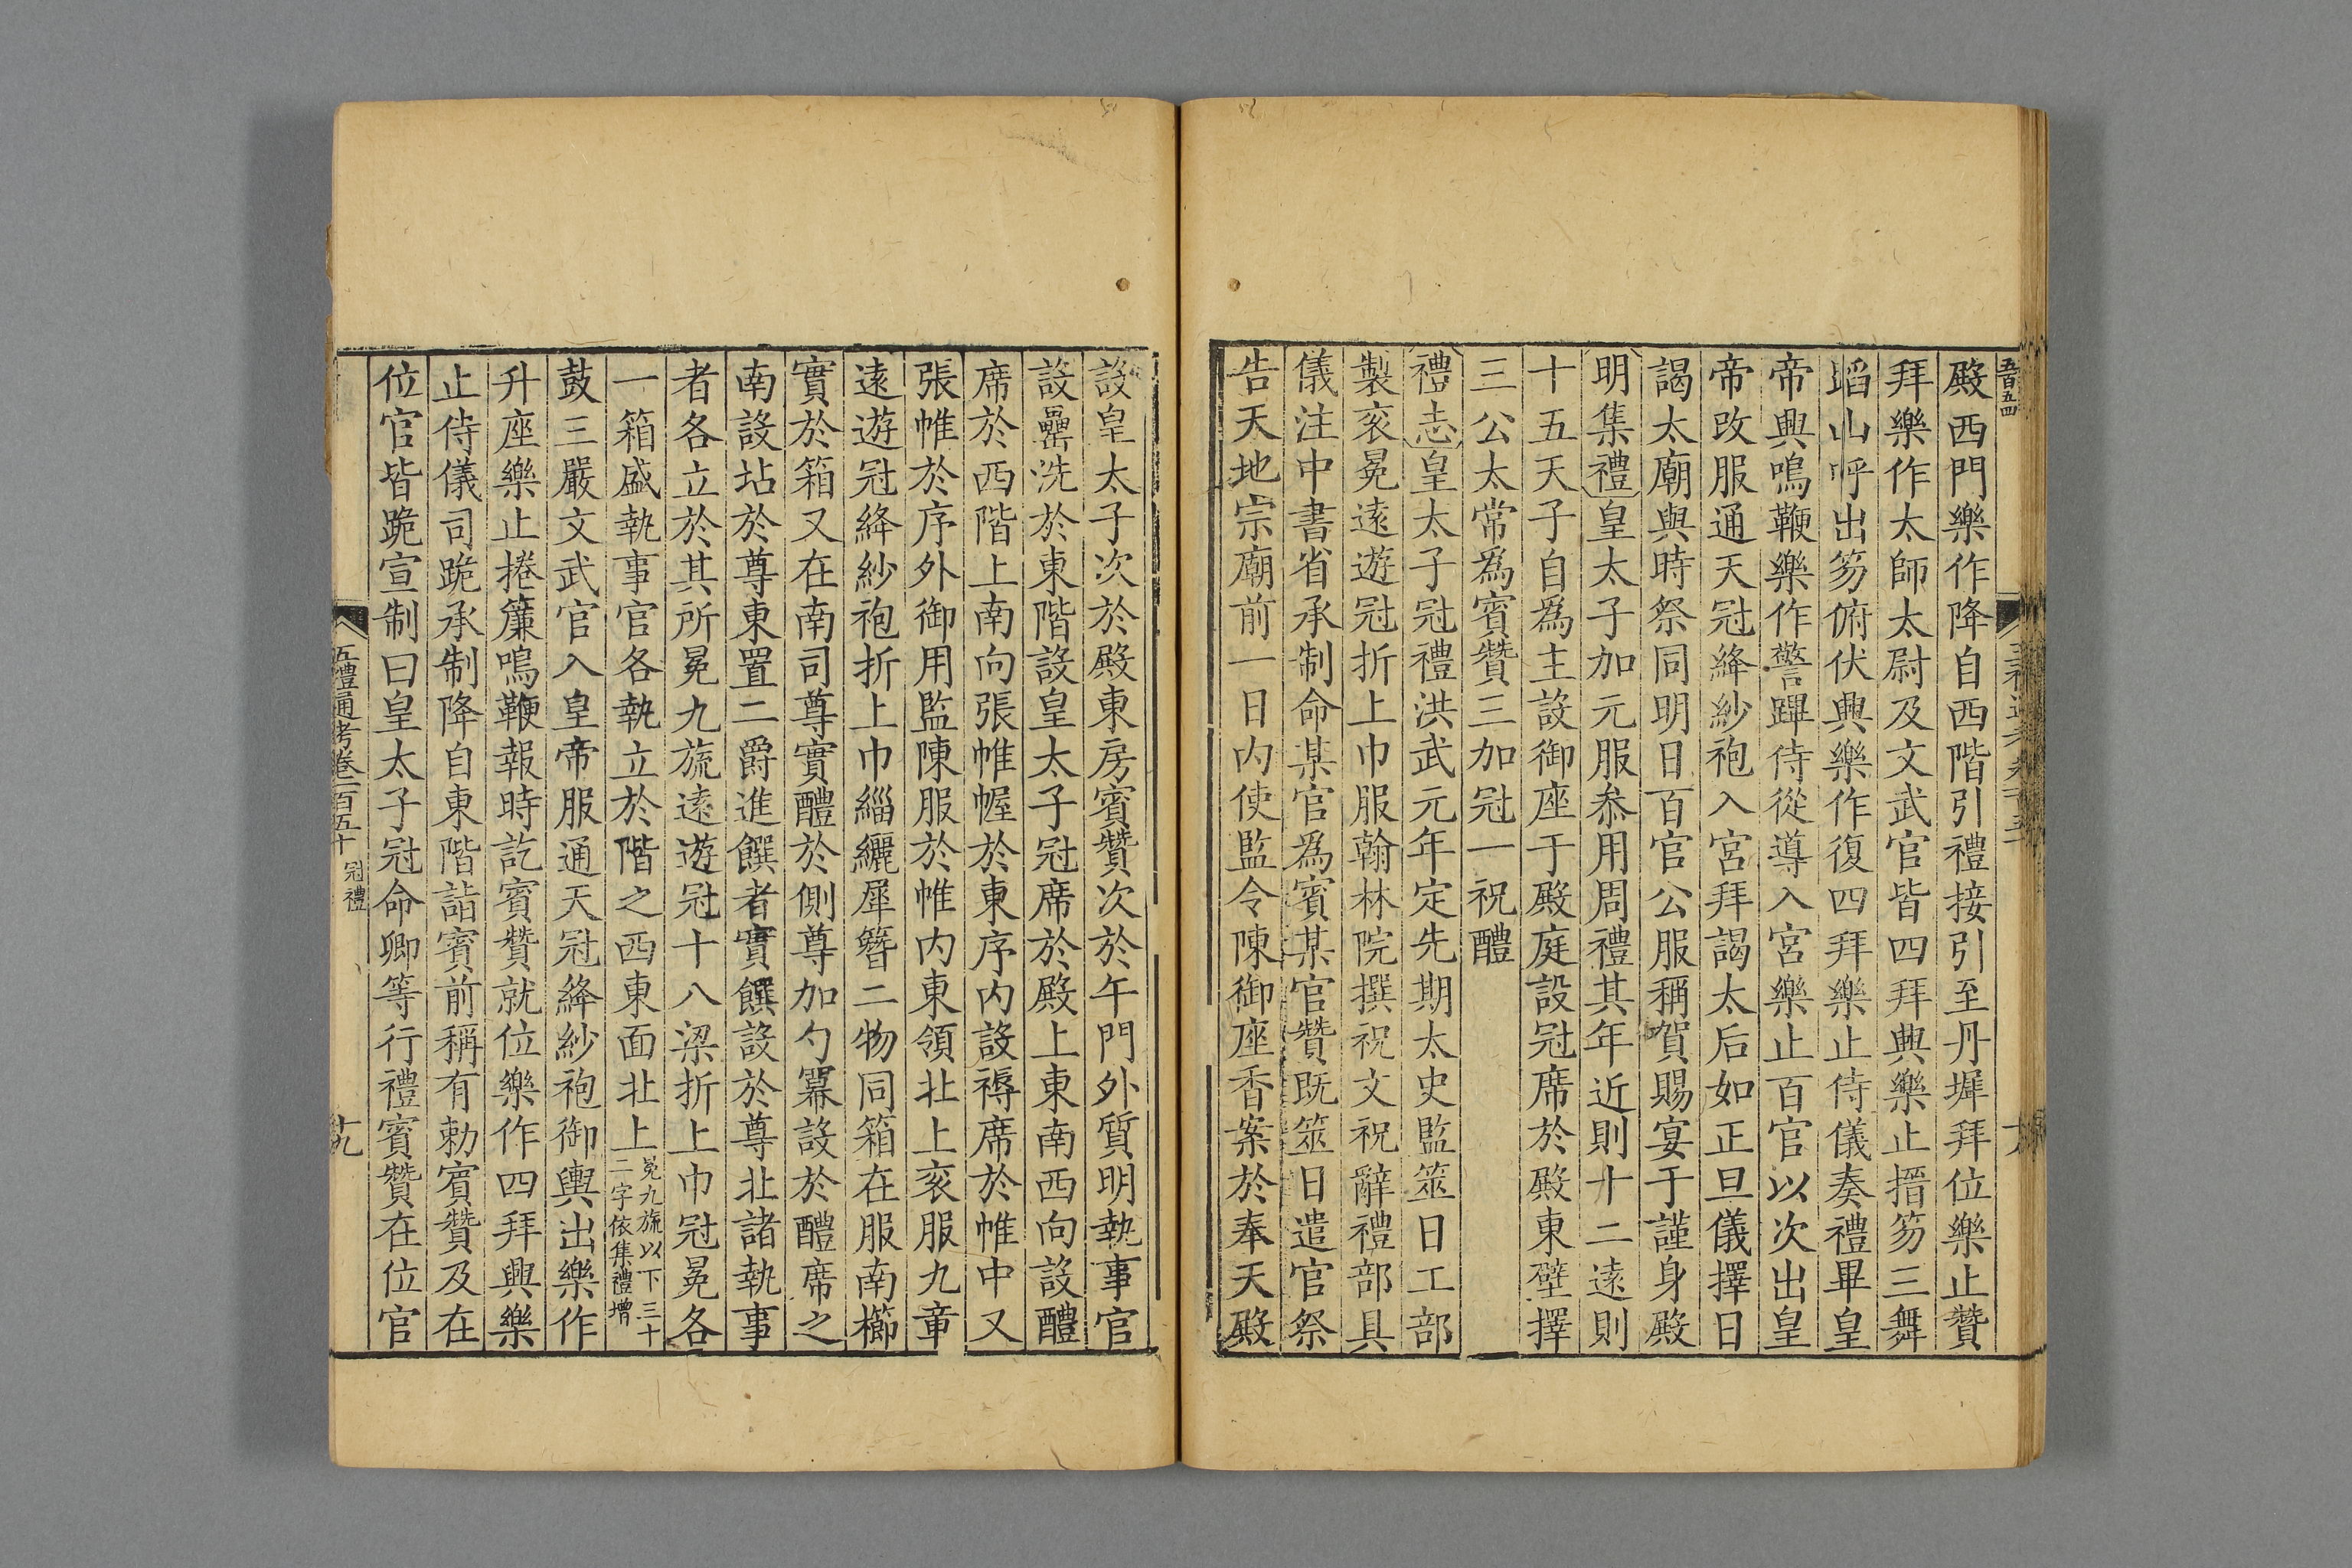 五百五四
殿西門樂作降自西階引禮接引至丹墀拜位樂止贊
拜樂作太師太尉及文武官皆四拜興樂止搢笏三舞
蹈山呼出笏俯伏興樂作復四拜樂止侍儀奏禮畢皇
帝興鳴鞭樂作警蹕侍從導入宮樂止百官以次出皇
帝改服通天冠絳紗袍入宮拜謁太后如正旦儀擇日
謁太廟與時祭同明日百官公服稱賀賜宴于謹身殿
明集禮皇太子加元服叅用周禮其年近則十二遠則
十五天子自爲主設御座于殿庭設冠席於殿東壁擇
三公太常爲賓贊三加冠一祝醴
禮志皇太子冠禮洪武元年定先期太史監筮日工部
製衮冕遠遊冠折上巾服翰林院撰祝文祝辭禮部具
儀注中書省承制命某官爲賓某官贊既筮日遣官祭
告天地宗廟前一日内使監令陳御座香案於奉天殿
設皇太子次於殿東房賓贊次於午門外質明執事官
設罍洗於東階設皇太子冠席於殿上東南西向設醴
席於西階上南向張帷幄於東序内設褥席於帷中又
張帷於序外御用監陳服於帷内東領北上衮服九章
遠遊冠絳紗袍折上巾緇纚犀簪二物同箱在服南櫛
實於箱又在南司尊實醴於側尊加勺冪設於醴席之
南設坫於尊東置二爵進饌者實饌設於尊北諸執事
者各立於其所冕九旒遠遊冠十八梁折上巾冠冕各
一箱盛執事官各執立於階之西東面北上冕九旒以下三十二字依集禮增
鼓三嚴文武官入皇帝服通天冠絳紗袍御輿出樂作
升座樂止捲簾鳴鞭報時訖賓贊就位樂作四拜興樂
止侍儀司跪承制降自東階詣賓前稱有勅賓贊及在
位官皆跪宣制曰皇太子冠命卿等行禮賓贊在位官
五禮通考卷一百五十 冠禮 十九